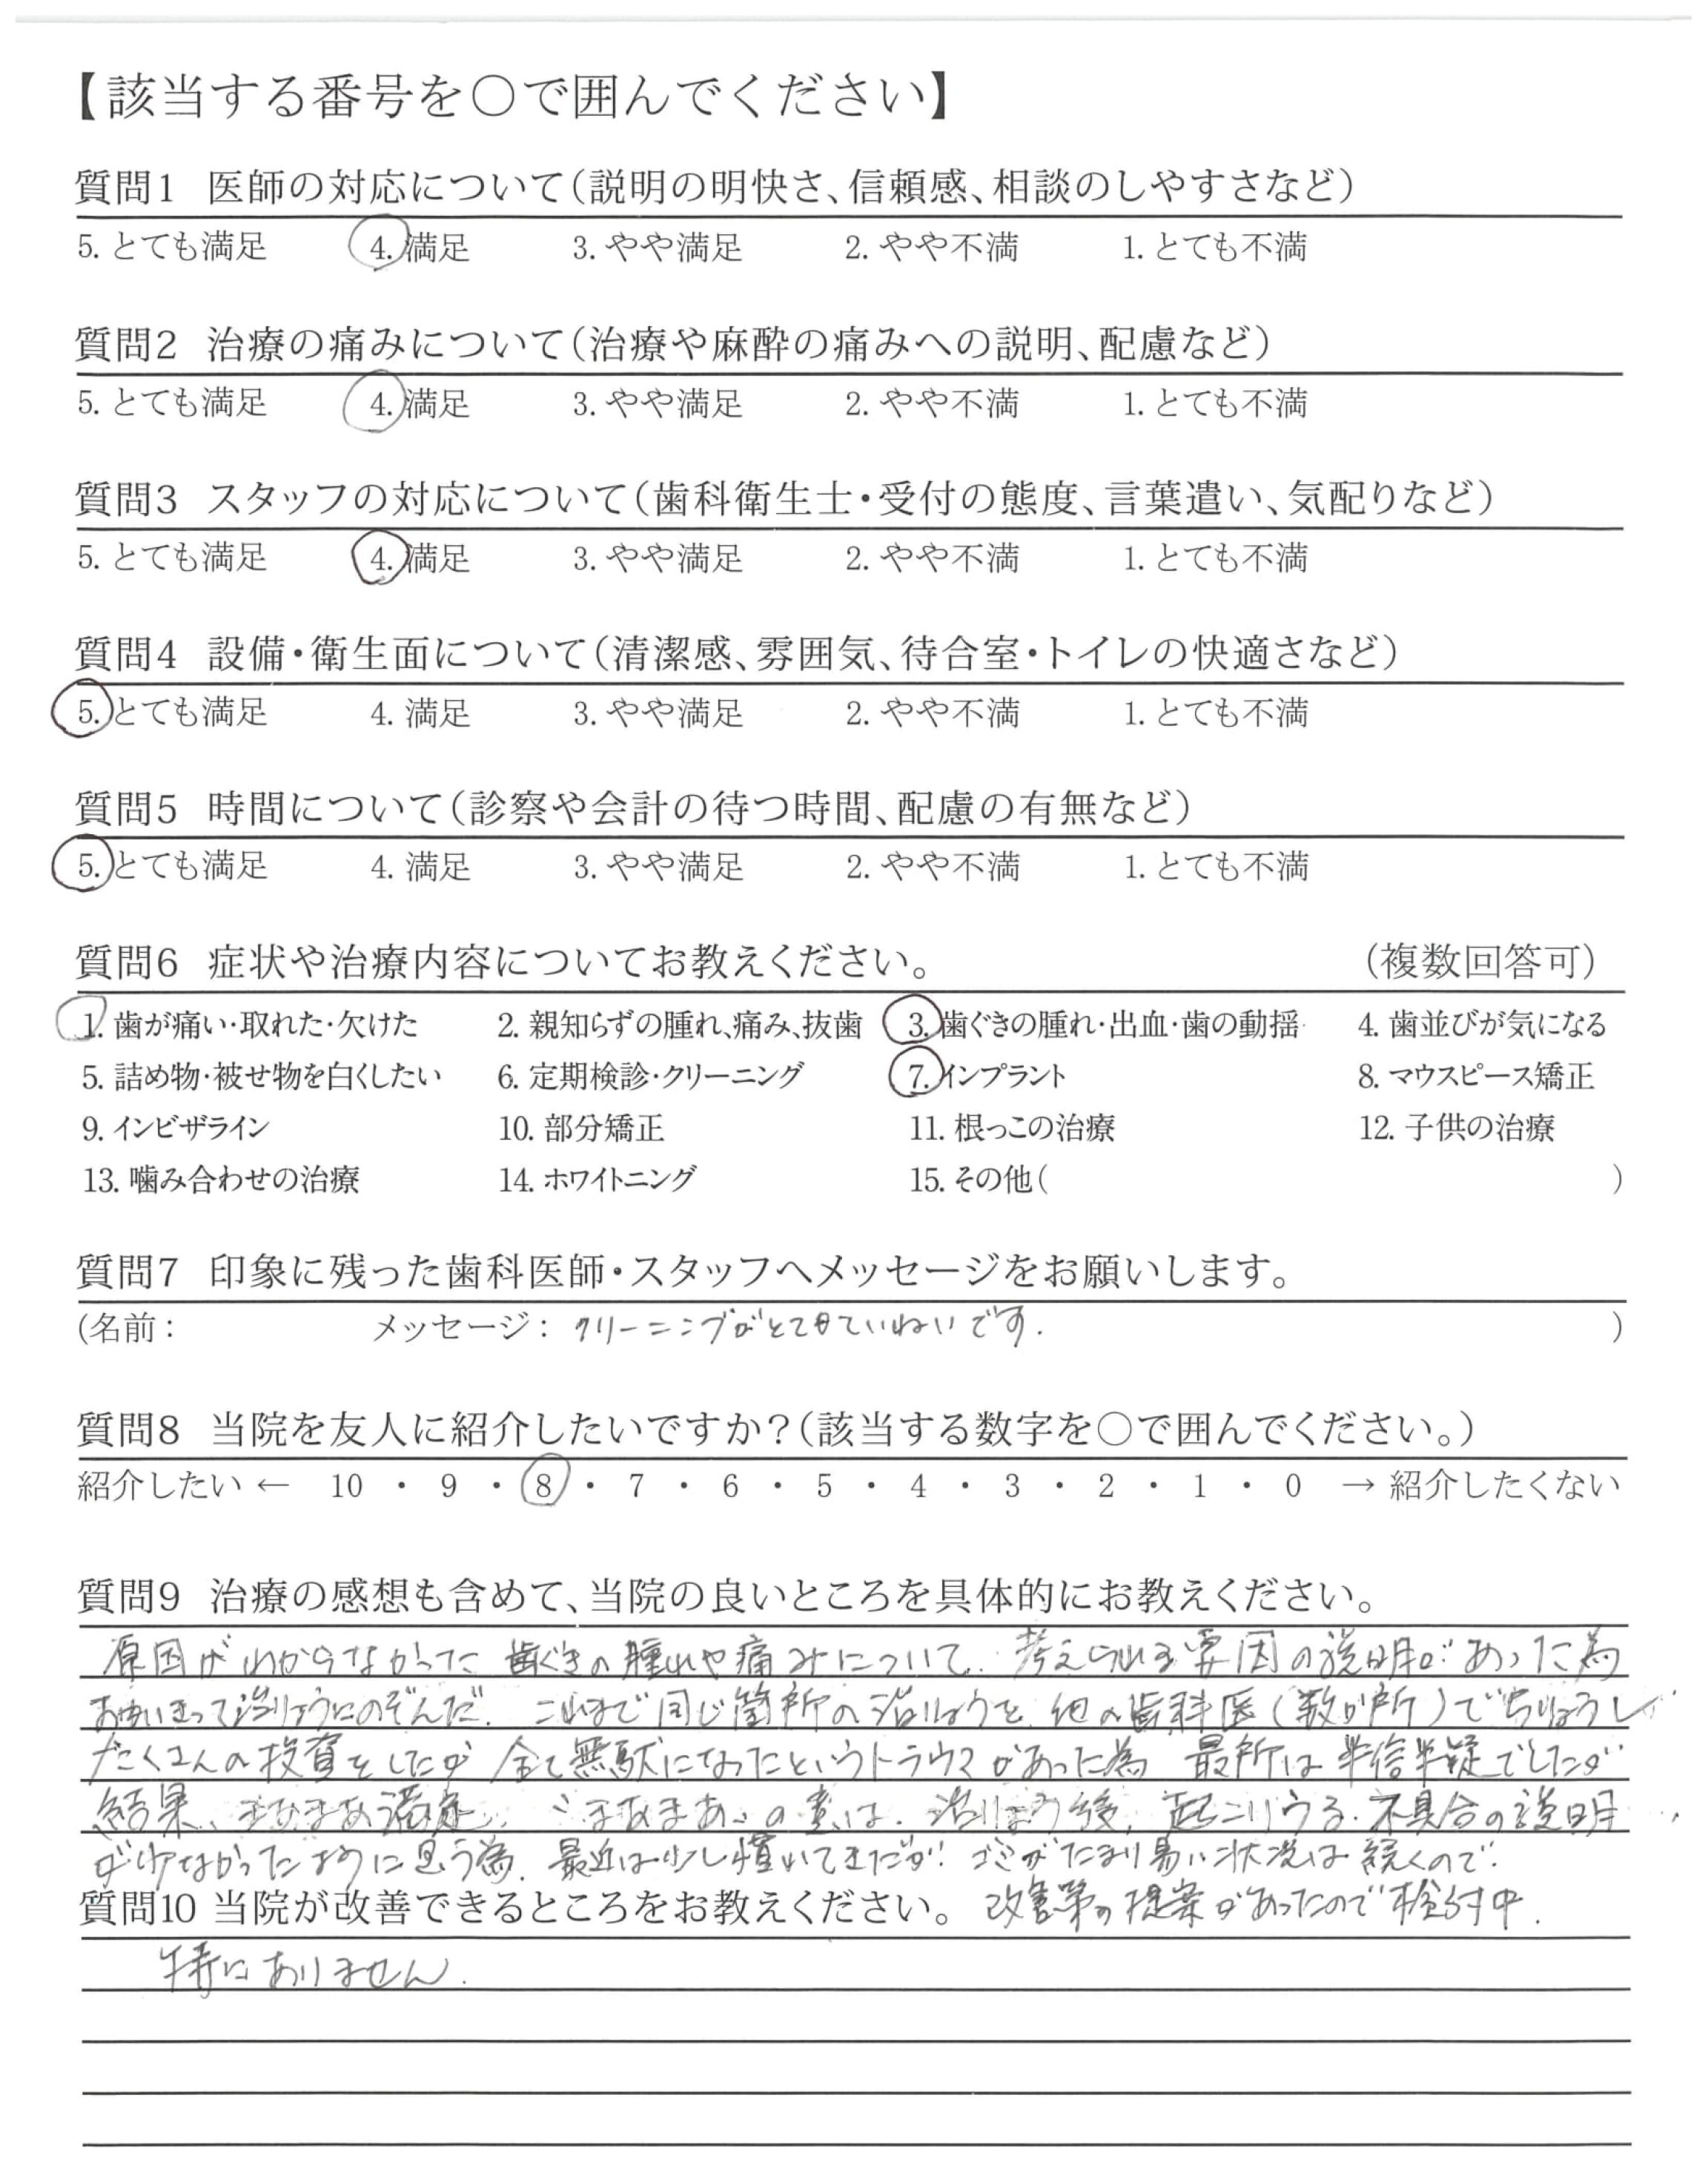 【該当する番号を○で囲んでください】
質問1 医師の対応について（説明の明快さ、信頼感、相談のしやすさなど）
5. とても満足 4. 満足 3. やや満足 2. やや不満 1. とても不満
質問2 治療の痛みについて（治療や麻酔の痛みへの説明、配慮など）
5. とても満足 4. 満足 3. やや満足 2. やや不満 1. とても不満
質問3 スタッフの対応について（歯科衛生士・受付の態度、言葉遣い、気配りなど）
5. とても満足 4. 満足 3. やや満足 2. やや不満 1. とても不満
質問4 設備・衛生面について（清潔感、雰囲気、待合室・トイレの快適さなど）
5. とても満足 4. 満足 3. やや満足 2. やや不満 1. とても不満
質問5 時間について（診察や会計の待つ時間、配慮の有無など）
5. とても満足 4. 満足 3. やや満足 2. やや不満 1. とても不満
質問6 症状や治療内容についてお教えください。 （複数回答可）
1. 歯が痛い・取れた・欠けた 2. 親知らずの腫れ、痛み、抜歯 3. 歯ぐきの腫れ・出血・歯の動揺 4. 歯並びが気になる
5. 詰め物・被せ物を白くしたい 6. 定期検診・クリーニング 7. インプラント 8. マウスピース矯正
9. インビザライン 10. 部分矯正 11. 根っこの治療 12. 子供の治療
13. 噛み合わせの治療 14. ホワイトニング 15. その他（ ）
質問7 印象に残った歯科医師・スタッフへメッセージをお願いします。
（名前： メッセージ：クリーニングがとてもていねいです. ）
質問8 当院を友人に紹介したいですか？（該当する数字を○で囲んでください。）
紹介したい ← 10 ・ 9 ・ 8 ・ 7 ・ 6 ・ 5 ・ 4 ・ 3 ・ 2 ・ 1 ・ 0 → 紹介したくない
質問9 治療の感想も含めて、当院の良いところを具体的にお教えください。
原因がわからなかった 歯ぐきの腫れや痛みについて. 考えられる要因の説明があった為
おもいきって治りょうにのぞんだ. これまで同じ箇所の治りょうを 他の歯科医（数か所）でちりょうし
たくさんの投資をしたが 全て無駄になったというトラウマがあった為 最所は半信半疑でしたが
結果、まあまあ満足. “まあまあ”の意は. 治りょう後, 起こりうる. 不具合の説明
が少なかったように思う為. 最近は少し慣れてきたが. ゴミがたまり易い状況は続くので.
質問10 当院が改善できるところをお教えください。 改善策の提案があったので検討中.
特にありません.